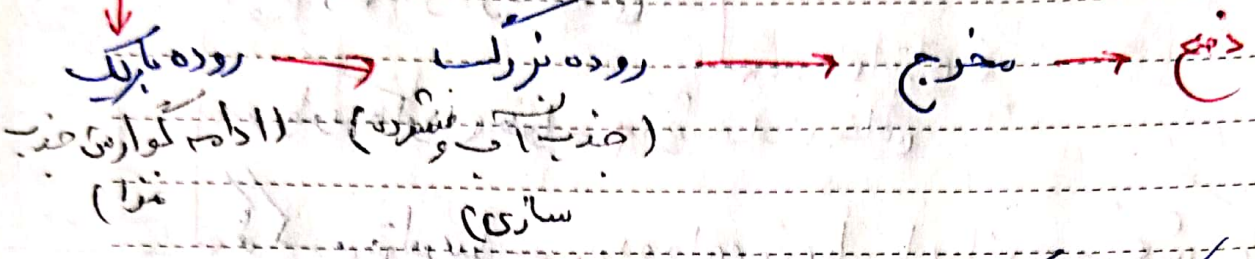 روده باریک → روده بزرگ → مخرج → دفع
(ادامه گوارش جذب (جذب آب و فشرده)
غذا) سازی)